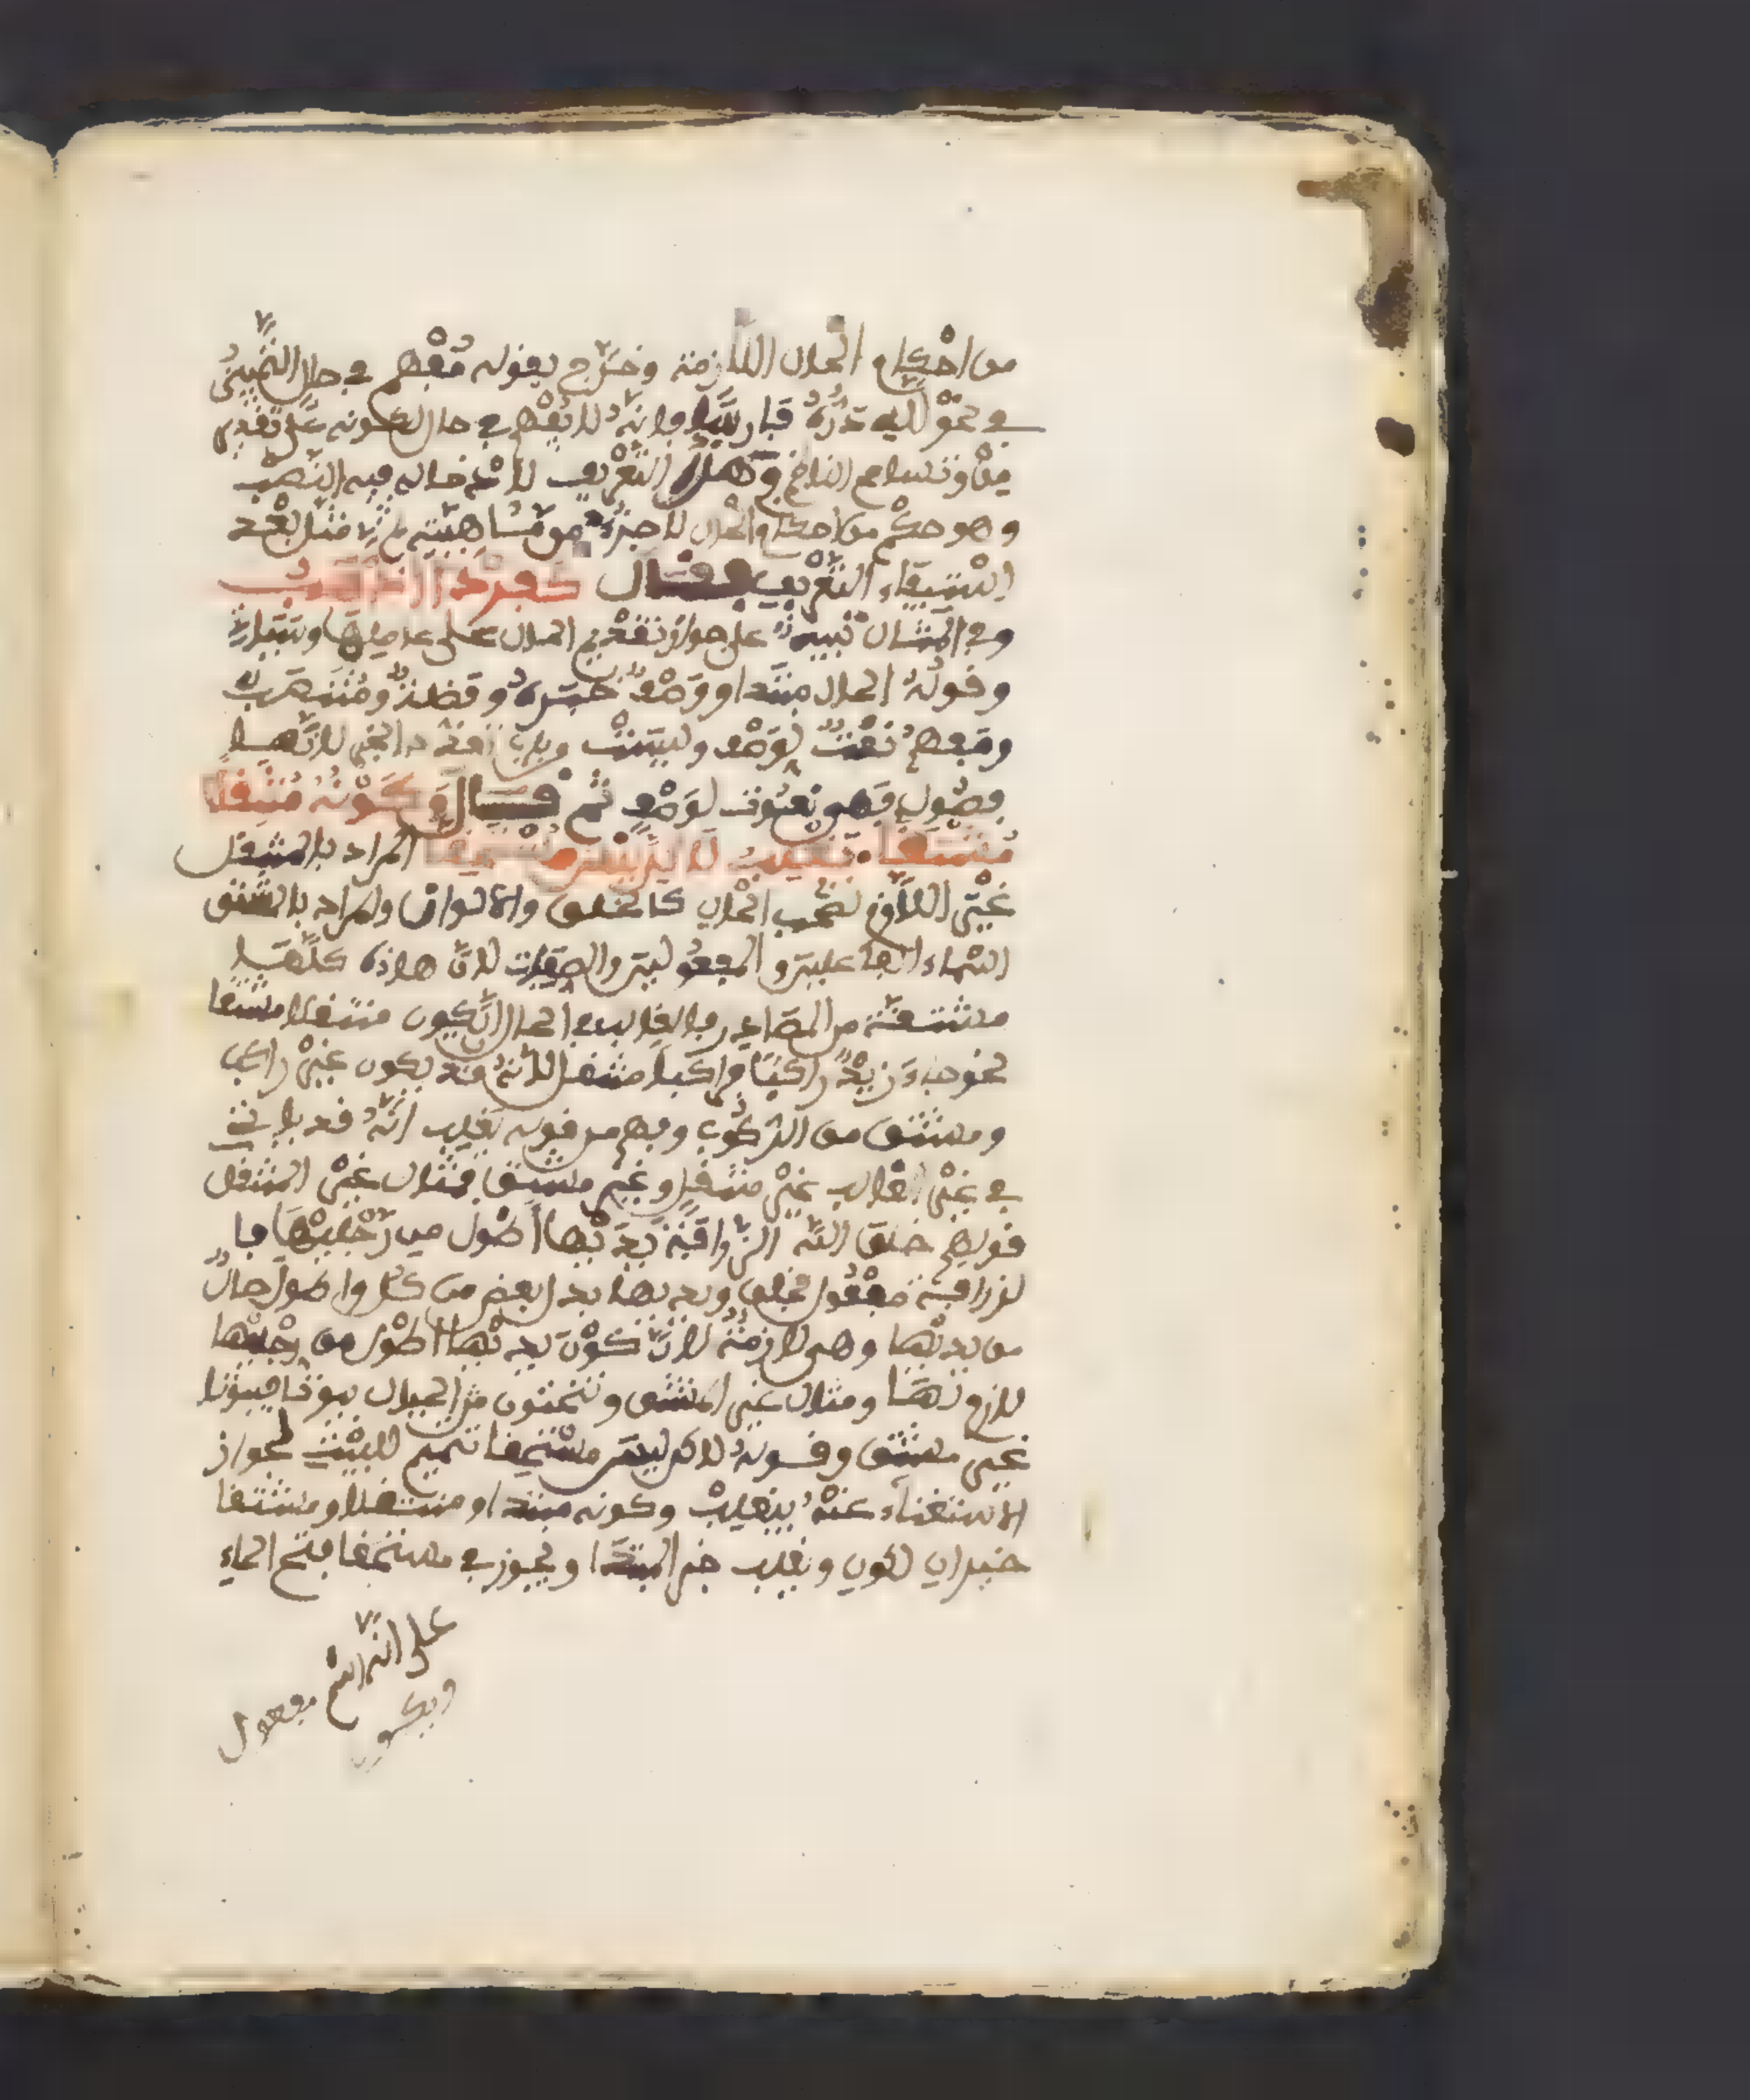 من احكام الحال اللازمة وخرج بقوله مفهم في حال التمييز
في نحو لله دره فارسا فانه لا يفهم في حال لكونه على تقدير
من وتسامح الناظم وهذا التعريف لادخاله فيه النصب
وهو حكم من احكام الحال لا جزء من ماهيته ثم مثل بعد
استيفاء التعريف فقال كفردا اذهب
وفي المثال تنبيه على جواز تقديم الحال على عاملها وسياتي
وقوله الحال مبتدا ووصف خبره وفضلة ومنتصب
ومفهم نعت لوصف وليست من باب تعدد الخبر لانها
فصول فهي نعوت لوصف ثم قال وكونه منتقلا
مشتقا يغلب لاكن ليس مستحقا المراد بالمنتقل
غير اللازم لصاحب الحال كالخلق والالوان والمراد بالمشتق
اسماء الفاعلين والمفعولين والصفات لان هاذه كلها
مشتقة من المصادر فالغالب في الحال ان يكون منتقلا مشتقا
نحو جاء زيد راكبا فراكبا منتقل لانه قد يكون غير راكب
ومشتق من الركوب وفهم من قوله يغلب انه قد ياتي
في غير الغالب غير منتقل وغير مشتق فمثال غير المنتقل
قولهم خلق الله الزرافة يديها اطول من رجليها فا
لزرافة مفعول بخلق ويديها بدل بعض من كل واطول حال
من يديها وهي لازمة لان كون يديها اطول من رجليها
لازم لها ومثال غير المشتق وتنحتون من الجبال بيوتا فبيوتا
غير مشتق وقوله لاكن ليس مستحقا تتميم للبيت لجواز
الاستغناء عنه بيغلب وكونه مبتدا ومنتقلا ومشتقا
خبران لكون ويغلب خبر المبتدا ويجوز في مستحقا فتح الحاء
على انه اسم مفعول
ويكون